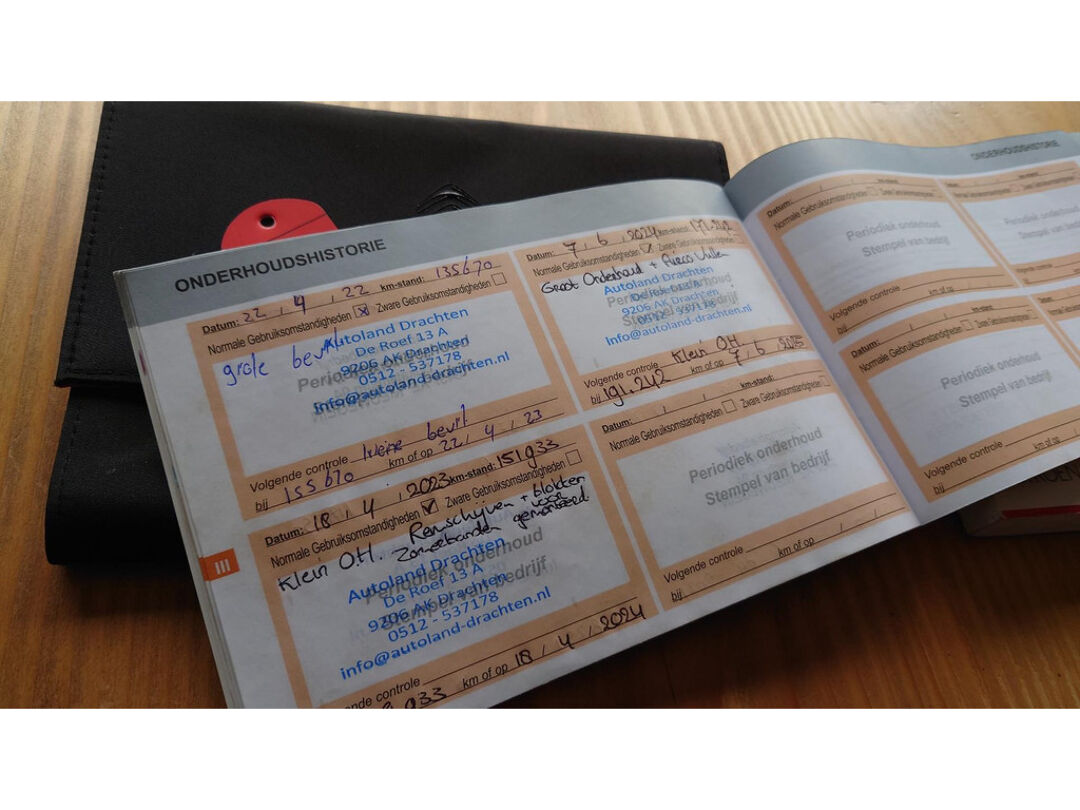 ONDERHOUDSHISTORIE
Datum: 22 / 4 / 22 km-stand: 135670
Normale Gebruiksomstandigheden Zware Gebruiksomstandigheden
grote
Autoland Drachten
De Roef 13 A
9206 AK Drachten
0512 - 537178
info@autoland-drachten.nl
Volgende controle kleine
bij 155670 km of op 22 / 4 / 23
Datum: 18 / 4 / 2023 km-stand: 151933
Normale Gebruiksomstandigheden Zware Gebruiksomstandigheden
Klein O.H. Remschijven + blokken
voor
Zomerbanden gemonteerd.
Periodiek onderhoud
Stempel van bedrijf
Autoland Drachten
De Roef 13 A
9206 AK Drachten
0512 - 537178
info@autoland-drachten.nl
controle
933 km of op 18 / 4 / 2024
III
Datum: 7 / 6 / 2024 km-stand: 171.242
Normale Gebruiksomstandigheden Zware Gebruiksomstandigheden
Groot Onderhoud + Airco Vullen
Autoland Drachten
De Roef 13 A
9206 AK Drachten
0512 - 537178
Info@autoland-drachten.nl
Volgende controle Klein O.H.
bij 191.242 km of op 7 / 6 / 2025
Datum: / / km-stand:
Normale Gebruiksomstandigheden Zware Gebruiksomstandigheden
Periodiek onderhoud
Stempel van bedrijf
Volgende controle
bij km of op / /
ONDERHOUDSHISTORIE
Datum: / /
Normale Gebruiksomstandigheden
Periodiek onderhoud
Stempel van bedrijf
Volgende controle
bij km of op
Datum:
Normale Gebruiksomstandigheden
Periodiek onderhoud
Stempel van bedrijf
Volgende controle
bij km of op
Periodiek onderhoud
Stempel van bedrijf